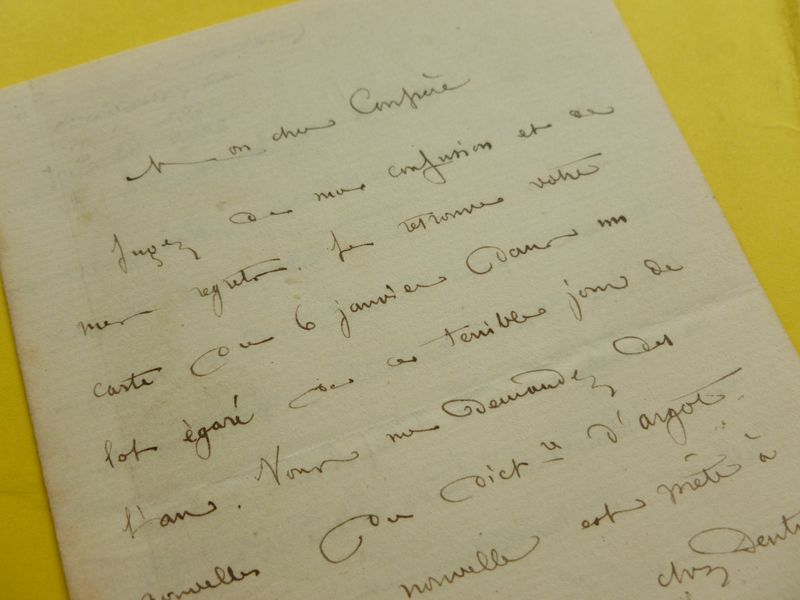 Mon cher Confrère
Jugez de ma confusion et de
mes regrets. Je retrouve votre
carte du 6 janvier dans un
lot égaré de ce terrible jour de
l'an. Vous me demandez des
nouvelles du Dict re d'argot.
nouvelle est prête à
chez Dentu